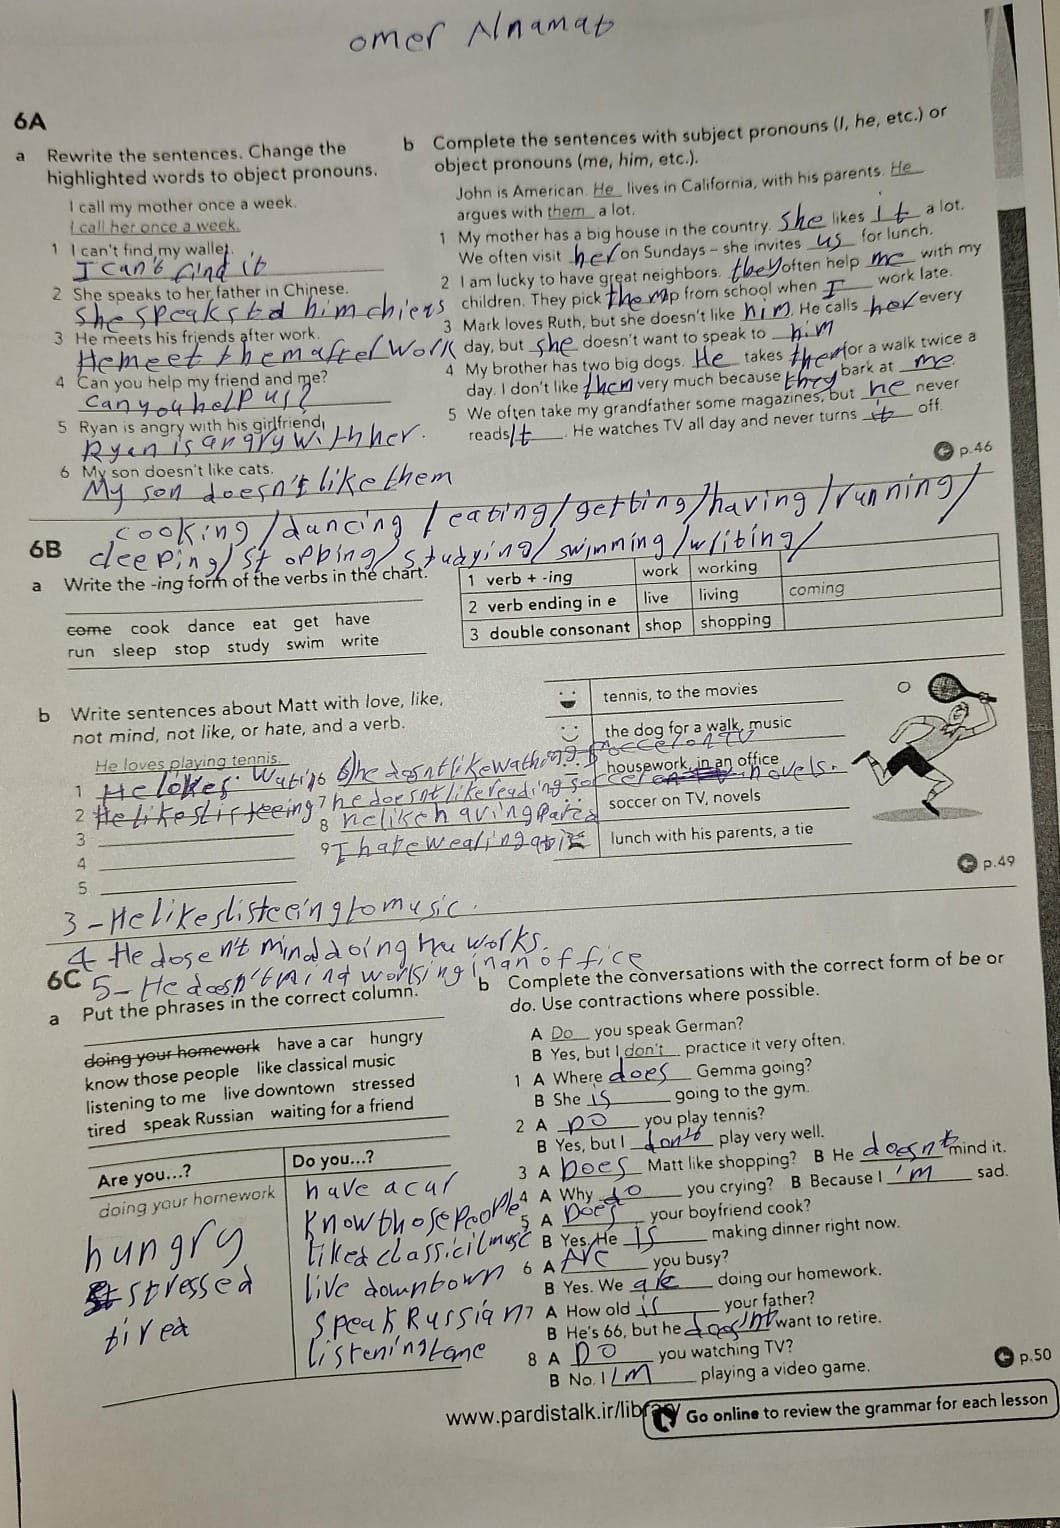 omer Alnamat
6A
a Rewrite the sentences. Change the
highlighted words to object pronouns.
I call my mother once a week.
I call her once a week.
1 I can't find my wallet.
I can't find it
2 She speaks to her father in Chinese.
She speaks to him chiers
3 He meets his friends after work.
He meet them after work
4 Can you help my friend and me?
can you help us?
5 Ryan is angry with his girlfriend.
Ryan is angry with her.
6 My son doesn't like cats.
My son doesn't like them
b Complete the sentences with subject pronouns (I, he, etc.) or
object pronouns (me, him, etc.).
John is American. He lives in California, with his parents. He
argues with them a lot.
1 My mother has a big house in the country. She likes It a lot.
We often visit her on Sundays – she invites us for lunch.
2 I am lucky to have great neighbors. they often help me with my
children. They pick them up from school when I work late.
3 Mark loves Ruth, but she doesn't like him. He calls her every
day, but she doesn't want to speak to him
4 My brother has two big dogs. He takes them for a walk twice a
day. I don't like them very much because they bark at me.
5 We often take my grandfather some magazines, but he never
reads It. He watches TV all day and never turns it off.
p.46
cooking / dancing / eating / getting / having / running /
sleeping / stopping / studying / swimming / writing /
6B
a Write the -ing form of the verbs in the chart.
come cook dance eat get have
run sleep stop study swim write
1 verb + -ing work working
2 verb ending in e live living coming
3 double consonant shop shopping
b Write sentences about Matt with love, like,
not mind, not like, or hate, and a verb.
He loves playing tennis.
tennis, to the movies
the dog for a walk, music
housework, in an office
soccer on TV, novels
lunch with his parents, a tie
1 He loves
2
3
4
5
7 he doesnt like reading novels.
8 he likes having
9 I hate wearing a tie
p.49
3 - He likes listeeing to music.
4 He dosen't mind doing
5 - He doesn't mind working in an office
6C
a Put the phrases in the correct column.
doing your homework have a car hungry
know those people like classical music
listening to me live downtown stressed
tired speak Russian waiting for a friend
Are you...? Do you...?
doing your homework have a car
hungry know those people
liked classicil music
stressed live downtown
tired speak Russian
listening to me
b Complete the conversations with the correct form of be or
do. Use contractions where possible.
A Do you speak German?
B Yes, but I don't practice it very often.
1 A Where does Gemma going?
B She is going to the gym.
2 A DO you play tennis?
B Yes, but I don't play very well.
3 A Does Matt like shopping? B He doesn't mind it.
4 A Why do you crying? B Because I 'm sad.
5 A Does your boyfriend cook?
B Yes. He IS making dinner right now.
6 A Are you busy?
B Yes. We are doing our homework.
7 A How old is your father?
B He's 66, but he doesn't want to retire.
8 A DO you watching TV?
B No. I 'M playing a video game.
p.50
www.pardistalk.ir/library
Go online to review the grammar for each lesson